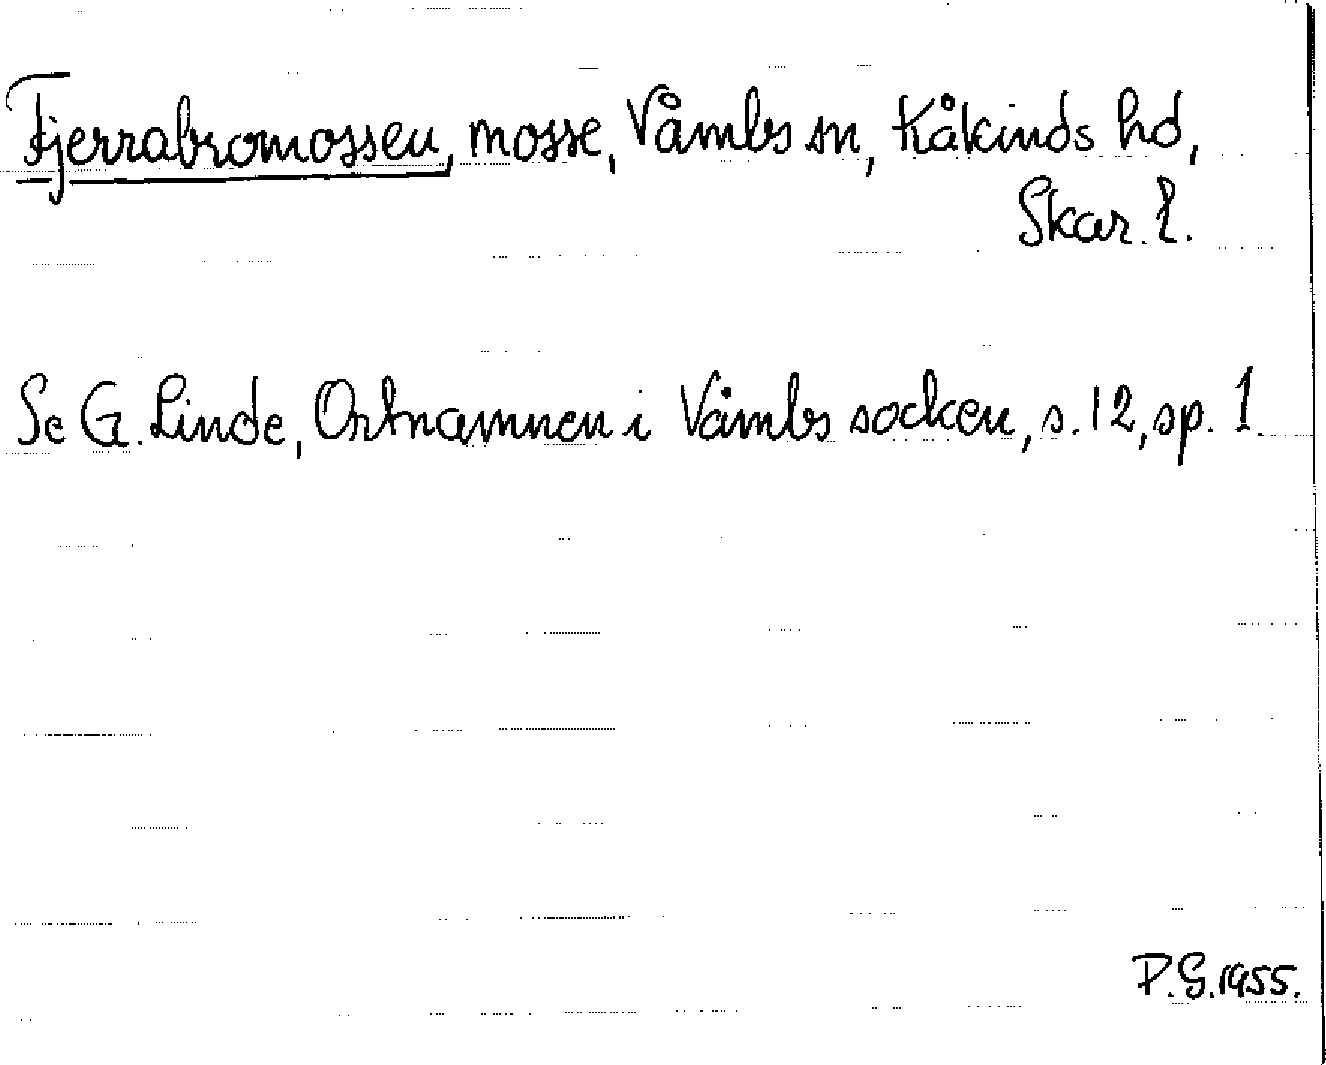 Fjerrabromossen, mosse, Våmbs sn, Kåkinds hd,
Skar. l.
Se G. Linde, Ortnamnen i Våmbs socken, s. 12, sp. 1.
P.G. 1955.